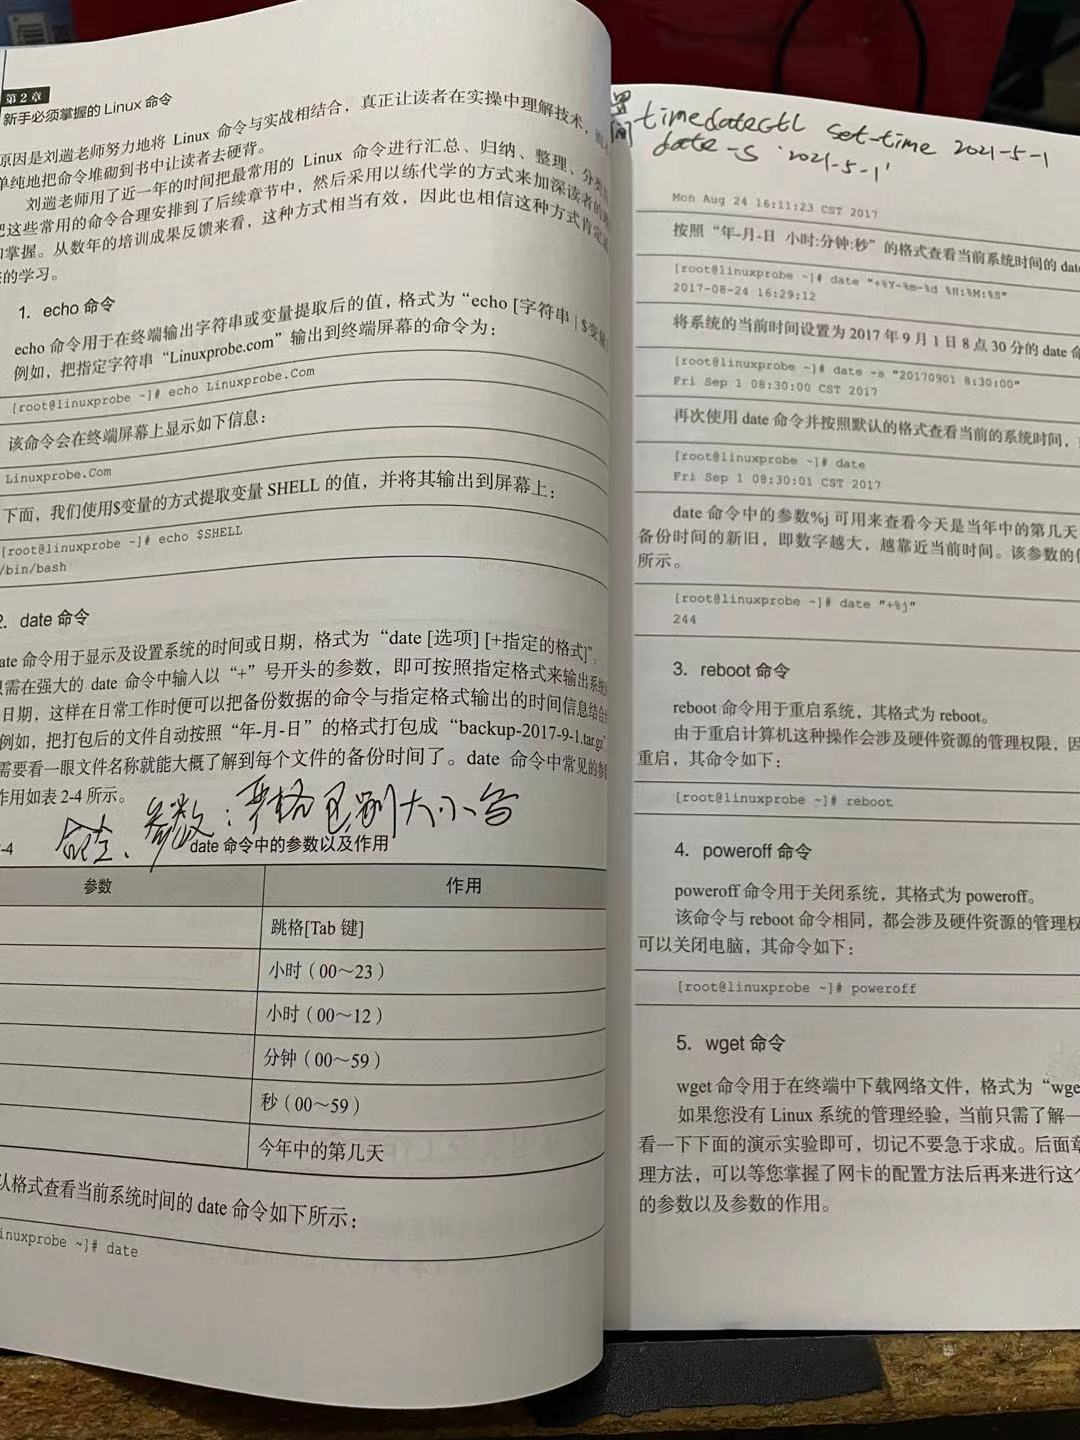 第2章
新手必须掌握的 Linux 命令
原因是刘遄老师努力地将 Linux 命令与实战相结合，真正让读者在实操中理解技术，而
单纯地把命令堆砌到书中让读者去硬背。
刘遄老师用了近一年的时间把最常用的 Linux 命令进行汇总、归纳、整理、分类
把这些常用的命令合理安排到了后续章节中，然后采用以练代学的方式来加深读者的
和掌握。从数年的培训成果反馈来看，这种方式相当有效，因此也相信这种方式肯定
的学习。
1. echo 命令
echo 命令用于在终端输出字符串或变量提取后的值，格式为“echo [字符串 | $变量
例如，把指定字符串“Linuxprobe.com”输出到终端屏幕的命令为：
[root@linuxprobe ~]# echo Linuxprobe.Com
该命令会在终端屏幕上显示如下信息：
Linuxprobe.Com
下面，我们使用$变量的方式提取变量 SHELL 的值，并将其输出到屏幕上：
[root@linuxprobe ~]# echo $SHELL
/bin/bash
2. date 命令
ate 命令用于显示及设置系统的时间或日期，格式为“date [选项] [+指定的格式]”。
只需在强大的 date 命令中输入以“+”号开头的参数，即可按照指定格式来输出系统
日期，这样在日常工作时便可以把备份数据的命令与指定格式输出的时间信息结合
例如，把打包后的文件自动按照“年-月-日”的格式打包成“backup-2017-9-1.tar.gz”
需要看一眼文件名称就能大概了解到每个文件的备份时间了。date 命令中常见的参
作用如表 2-4 所示。
命令、参数：严格区别大小写
-4 date 命令中的参数以及作用
参数 作用
跳格[Tab 键]
小时（00～23）
小时（00～12）
分钟（00～59）
秒（00～59）
今年中的第几天
认格式查看当前系统时间的 date 命令如下所示：
inuxprobe ~]# date
置 timedatectl set-time 2021-5-1
间 date -s '2021-5-1'
Mon Aug 24 16:11:23 CST 2017
按照“年-月-日 小时:分钟:秒”的格式查看当前系统时间的 date
[root@linuxprobe ~]# date "+%Y-%m-%d %H:%M:%S"
2017-08-24 16:29:12
将系统的当前时间设置为 2017 年 9 月 1 日 8 点 30 分的 date 命
[root@linuxprobe ~]# date -s "20170901 8:30:00"
Fri Sep 1 08:30:00 CST 2017
再次使用 date 命令并按照默认的格式查看当前的系统时间，
[root@linuxprobe ~]# date
Fri Sep 1 08:30:01 CST 2017
date 命令中的参数%j 可用来查看今天是当年中的第几天
备份时间的新旧，即数字越大，越靠近当前时间。该参数的
所示。
[root@linuxprobe ~]# date "+%j"
244
3. reboot 命令
reboot 命令用于重启系统，其格式为 reboot。
由于重启计算机这种操作会涉及硬件资源的管理权限，因
重启，其命令如下：
[root@linuxprobe ~]# reboot
4. poweroff 命令
poweroff 命令用于关闭系统，其格式为 poweroff。
该命令与 reboot 命令相同，都会涉及硬件资源的管理权
可以关闭电脑，其命令如下：
[root@linuxprobe ~]# poweroff
5. wget 命令
wget 命令用于在终端中下载网络文件，格式为“wge
如果您没有 Linux 系统的管理经验，当前只需了解一
看一下下面的演示实验即可，切记不要急于求成。后面章
理方法，可以等您掌握了网卡的配置方法后再来进行这个
的参数以及参数的作用。